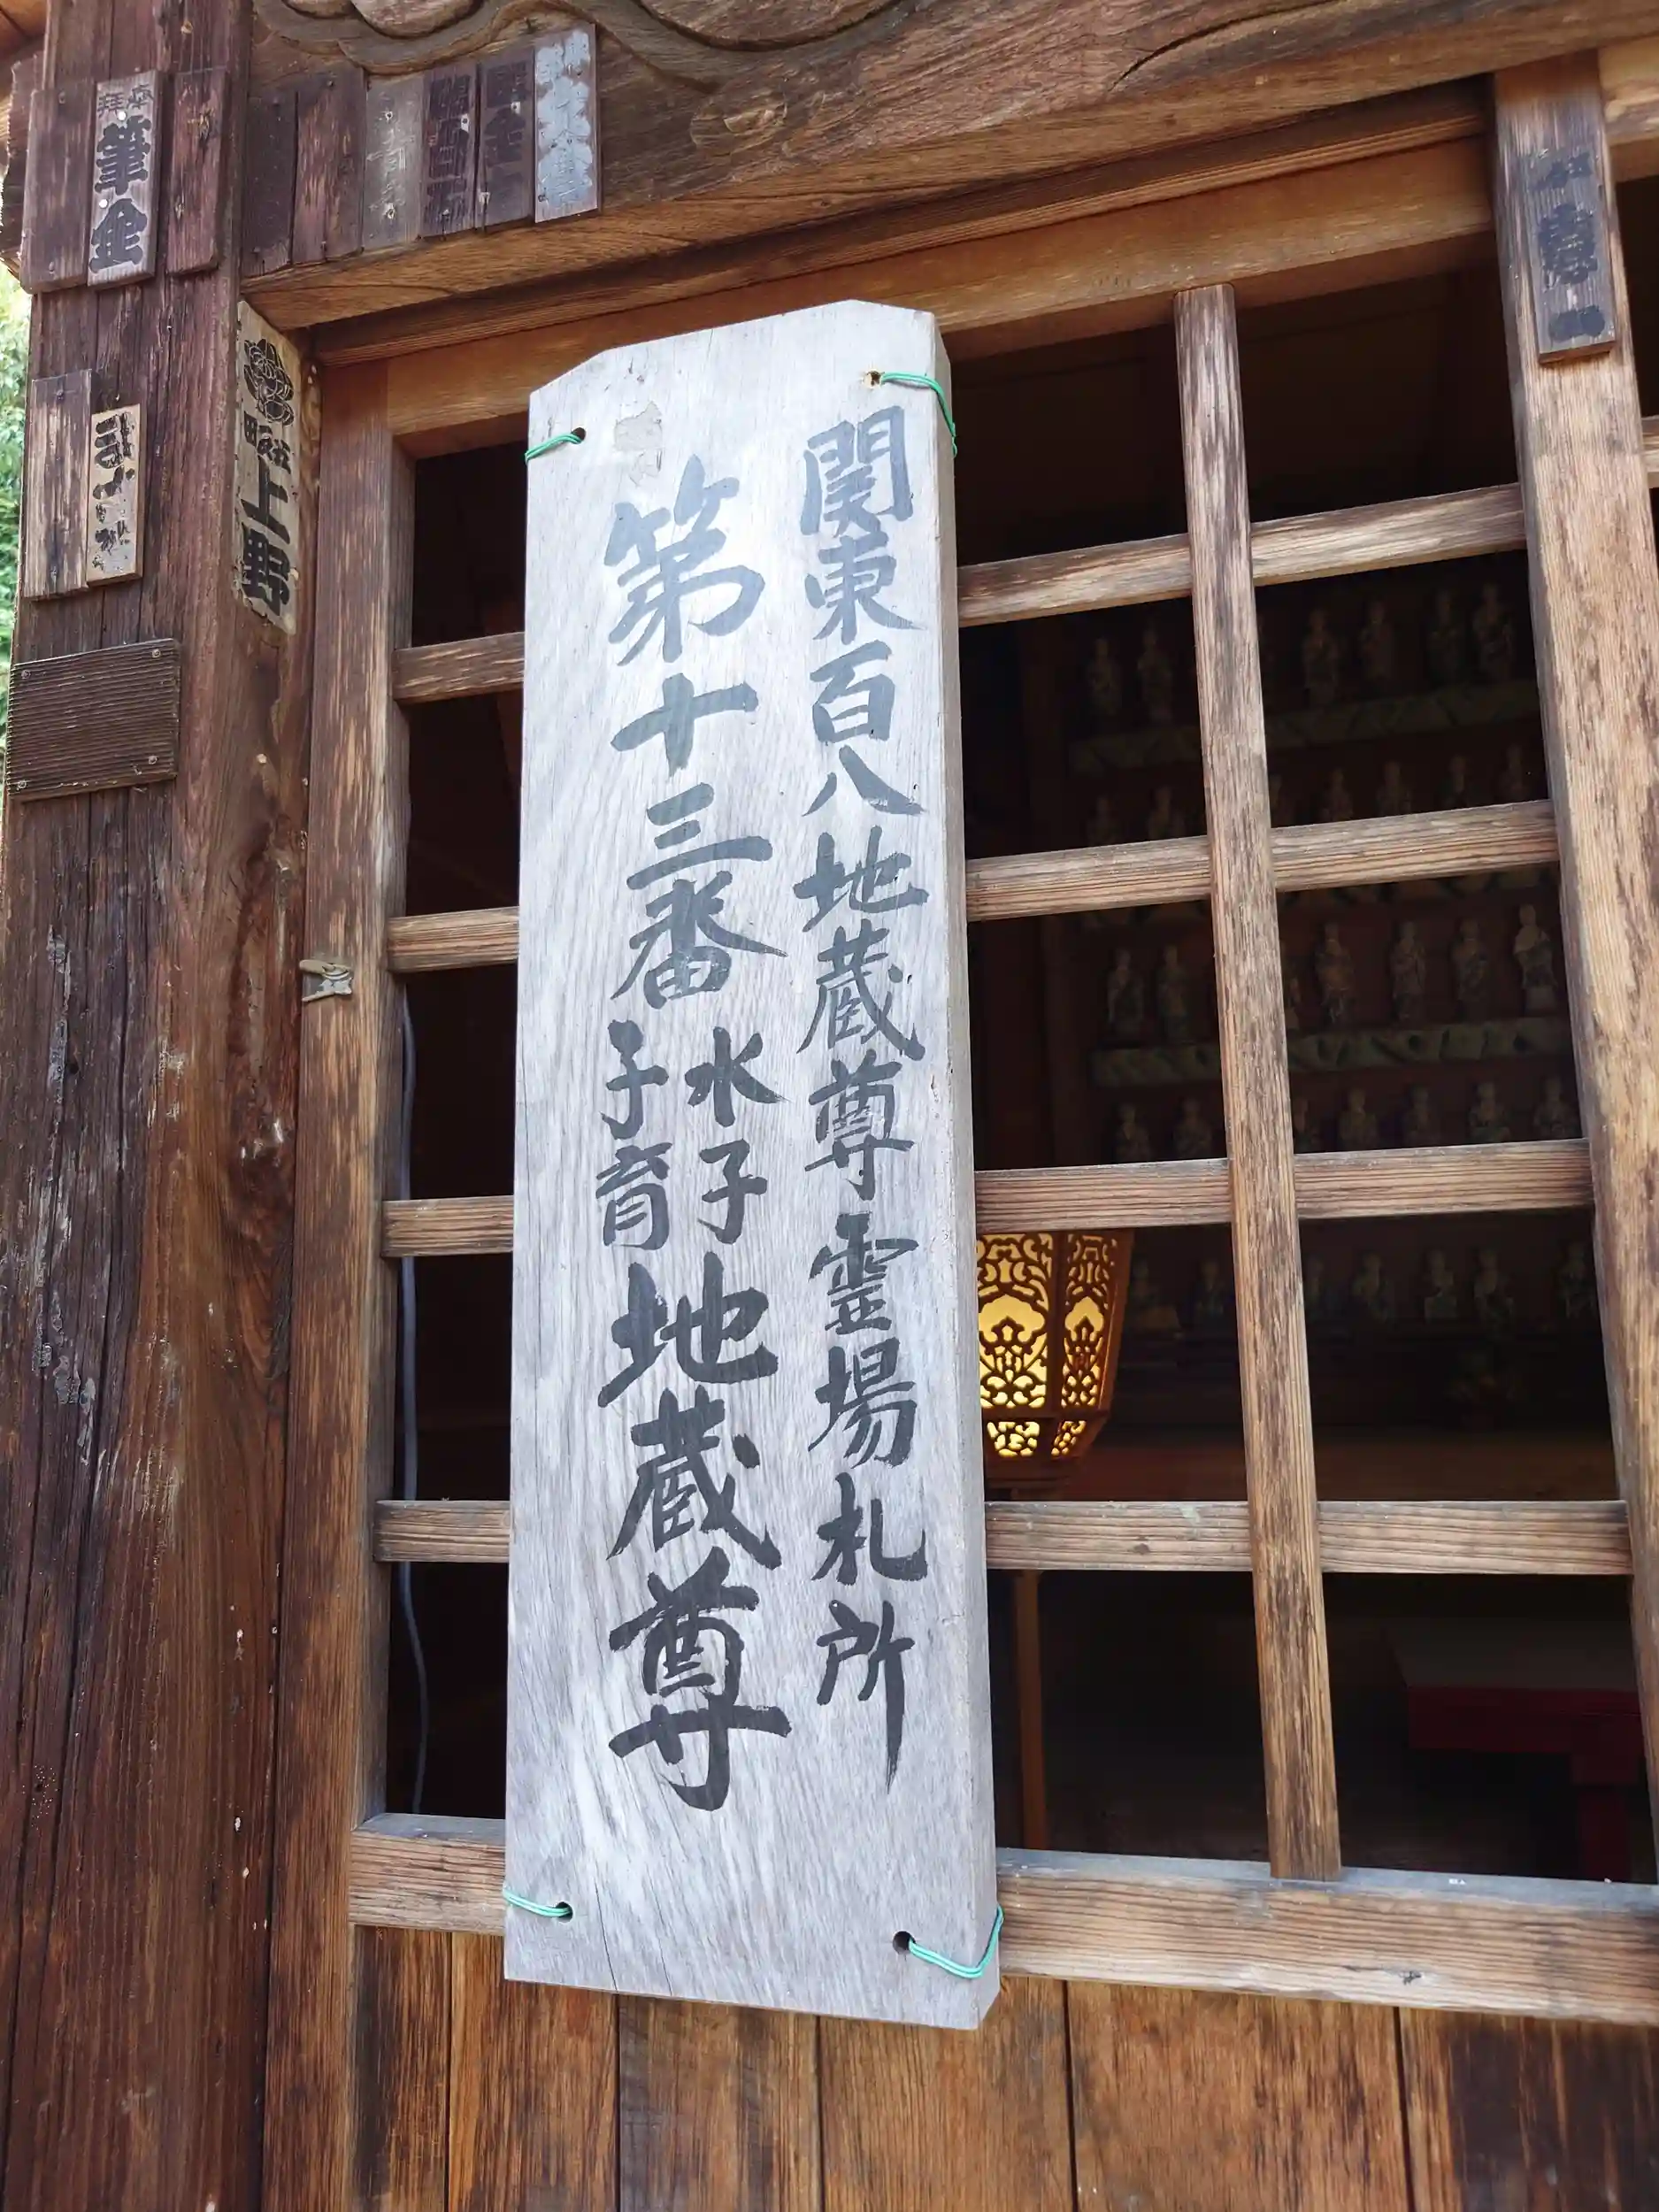 関東百八地蔵尊霊場札所
第十三番水子子育地蔵尊
筆金
上野